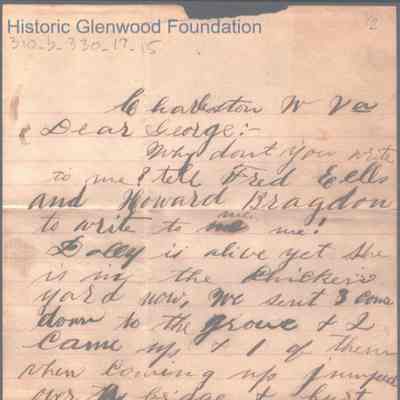 Historic Glenwood Foundation
12
310-b-330-17-15
Charleston W Va
Dear George:-
Why dont you write
to me? tell Fred Eells
and Howard Bragdon
to write to me me!
Dolly is alive yet she
is in the chickens
yard now, We sent 3 cows
down to the grove & 2
came up & 1 of them
when coming up jumped
over bridge & hurt